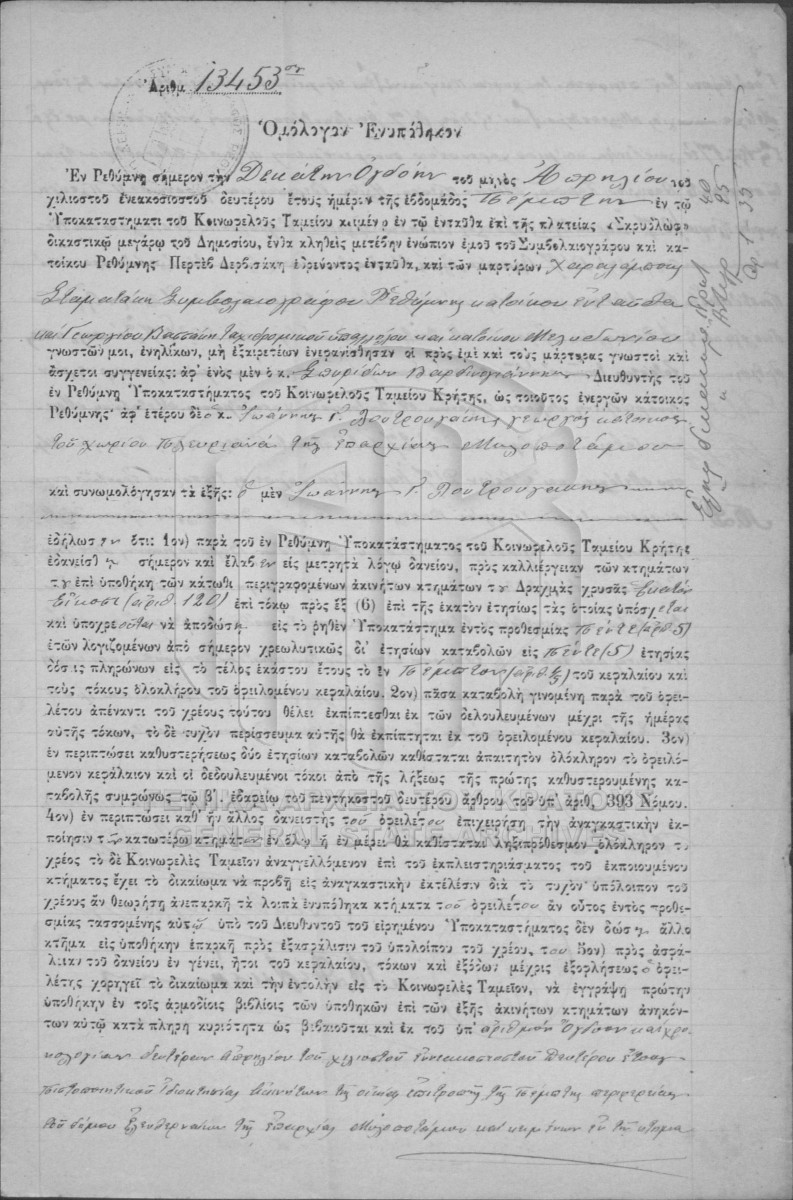 Ἀριθ. 13453ον
Ὁμόλογον Ἐνυπόθηκον
Ἐν Ρεθύμνῃ σήμερον τὴν Δεκάτην Ὀγδόην τοῦ μηνὸς Ἀπριλίου τοῦ
χιλιοστοῦ ἐνεακοσιοστοῦ δευτέρου ἔτους ἡμέραν τῆς ἑβδομάδος Πέμπτην ἐν τῷ
Ὑποκαταστήματι τοῦ Κοινωφελοῦς Ταμείου κειμένῳ ἐν τῷ ἐνταῦθα ἐπὶ τῆς πλατείας «Σκρυδλὼφ»
δικαστικῷ μεγάρῳ τοῦ Δημοσίου, ἔνθα κληθεὶς μετέβην ἐνώπιον ἐμοῦ τοῦ Συμβολαιογράφου καὶ κα-
τοίκου Ρεθύμνης Περτὲβ Δερβισάκη ἑδρεύοντος ἐνταῦθα, καὶ τῶν μαρτύρων Χαραλάμπους
Σταματάκη Συμβολαιογράφου Ρεθύμνης κατοίκου ἐνταῦθα
καὶ Γεωργίου ταχυδρομικοῦ ὑπαλλήλου καὶ κατοίκου Μελιδωνίου
γνωστῶν μοι, ἐνηλίκων, μὴ ἐξαιρετέων ἐνεφανίσθησαν οἱ πρὸς ἐμὲ καὶ τοὺς μάρτυρας γνωστοὶ καὶ
ἄσχετοι συγγενείας: ἀφ' ἑνὸς μὲν ὁ κ. Σπυρίδων Διευθυντὴς τοῦ
ἐν Ρεθύμνῃ Ὑποκαταστήματος τοῦ Κοινωφελοῦς Ταμείου Κρήτης, ὡς τοιοῦτος ἐνεργῶν κάτοικος
Ρεθύμνης· ἀφ' ἑτέρου δὲ ὁ κ. Ἰωάννης Γ. Λουτρουγάκης γεωργὸς κάτοικος
τοῦ χωρίου Πλευριανὰ τῆς ἐπαρχίας Μυλοποτάμου
καὶ συνωμολόγησαν τὰ ἑξῆς: ὁ μὲν Ἰωάννης Γ. Λουτρουγάκης
ἐδήλωσεν ὅτι: 1ον) παρὰ τοῦ ἐν Ρεθύμνῃ Ὑποκαταστήματος τοῦ Κοινωφελοῦς Ταμείου Κρήτης
ἐδανείσθη σήμερον καὶ ἔλαβεν εἰς μετρητὰ λόγῳ δανείου, πρὸς καλλιέργειαν τῶν κτημάτων
του ἐπὶ ὑποθήκῃ τῶν κάτωθι περιγραφομένων ἀκινήτων κτημάτων του Δραχμὰς χρυσᾶς ἑκατὸν
εἴκοσι (ἀριθ. 120) ἐπὶ τόκῳ πρὸς ἓξ (6) ἐπὶ τῆς ἑκατὸν ἐτησίως τὰς ὁποίας ὑπόσχεται
καὶ ὑποχρεοῦται νὰ ἀποδώσῃ εἰς τὸ ῥηθὲν Ὑποκατάστημα ἐντὸς προθεσμίας πέντε (ἀρ. 5)
ἐτῶν λογιζομένων ἀπὸ σήμερον χρεωλυτικῶς δι' ἐτησίων καταβολῶν εἰς πέντε (5) ἐτησίας
δόσεις πληρώνων εἰς τὸ τέλος ἑκάστου ἔτους τὸ ἓν πέμπτον (ἀριθ. 1/5) τοῦ κεφαλαίου καὶ
τοὺς τόκους ὁλοκλήρου τοῦ ὀφειλομένου κεφαλαίου. 2ον) πᾶσα καταβολὴ γινομένη παρὰ τοῦ ὀφει-
λέτου ἀπέναντι τοῦ χρέους τούτου θέλει ἐκπίπτεσθαι ἐκ τῶν δελουλευμένων μέχρι τῆς ἡμέρας
αὐτῆς τόκων, τὸ δὲ τυχὸν περίσσευμα αὐτῆς θὰ ἐκπίπτηται ἐκ τοῦ ὀφειλομένου κεφαλαίου. 3ον)
ἐν περιπτώσει καθυστερήσεως δύο ἐτησίων καταβολῶν καθίσταται ἀπαιτητὸν ὁλόκληρον τὸ ὀφειλό-
μενον κεφάλαιον καὶ οἱ δεδουλευμένοι τόκοι ἀπὸ τῆς λήξεως τῆς πρώτης καθυστερουμένης κα-
ταβολῆς συμφώνως τῷ β'. ἐδαφείῳ τοῦ πεντηκοστοῦ δευτέρου ἄρθρου τοῦ ὑπ' ἀριθ. 393 Νόμου.
4ον) ἐν περιπτώσει καθ' ἣν ἄλλος δανειστὴς τοῦ ὀφειλέτου ἐπιχειρήσῃ τὴν ἀναγκαστικὴν ἐκ-
ποίησιν τῶν κατωτέρω κτημάτων ἐν ὅλῳ ἢ ἐν μέρει θὰ καθίσταται ληξιπρόθεσμον ὁλόκληρον τὸ
χρέος τὸ δὲ Κοινωφελὲς Ταμεῖον ἀναγγελλόμενον ἐπὶ τοῦ ἐκπλειστηριάσματος τοῦ ἐκποιουμένου
κτήματος ἔχει τὸ δικαίωμα νὰ προβῇ εἰς ἀναγκαστικὴν ἐκτέλεσιν διὰ τὸ τυχὸν ὑπόλοιπον τοῦ
χρέους ἂν θεωρήσῃ ἀνεπαρκῆ τὰ λοιπὰ ἐνυπόθηκα κτήματα τοῦ ὀφειλέτου ἂν οὗτος ἐντὸς προθε-
σμίας τασσομένης αὐτῷ ὑπὸ τοῦ Διευθυντοῦ τοῦ εἰρημένου Ὑποκαταστήματος δὲν δώσῃ ἄλλο
κτῆμα εἰς ὑποθήκην ἐπαρκῆ πρὸς ἐξασφάλισιν τοῦ ὑπολοίπου τοῦ χρέους του 5ον) πρὸς ἀσφά-
λειαν τοῦ δανείου ἐν γένει, ἤτοι τοῦ κεφαλαίου, τόκων καὶ ἐξόδων μέχρις ἐξοφλήσεως ὁ ὀφει-
λέτης χορηγεῖ τὸ δικαίωμα καὶ τὴν ἐντολὴν εἰς τὸ Κοινωφελὲς Ταμεῖον, νὰ ἐγγράψῃ πρώτην
ὑποθήκην ἐν τοῖς ἁρμοδίοις βιβλίοις τῶν ὑποθηκῶν ἐπὶ τῶν ἑξῆς ἀκινήτων κτημάτων ἀνηκόν-
των αὐτῷ κατὰ πλήρη κυριότητα ὡς βεβαιοῦται καὶ ἐκ τοῦ ὑπ' ἀριθμὸν ὄγδοον καὶ χρο-
νολογίαν δευτέραν Ἀπριλίου τοῦ χιλιοστοῦ ἐννεακοσιοστοῦ δευτέρου ἔτους
πιστοποιητικοῦ ἰδιοκτησίας ἀκινήτων τῆς οἰκείας ἐπιτροπῆς τῆς πέμπτης περιφερείας
τοῦ δήμου Ἐλευθερναίων τῆς ἐπαρχίας Μυλοποτάμου καὶ κειμένων ἐν τῇ κτημα
ΓΕΝΙΚΑ ΑΡΧΕΙΑ ΤΟΥ ΚΡΑΤΟΥΣ
GENERAL STATE ARCHIVES